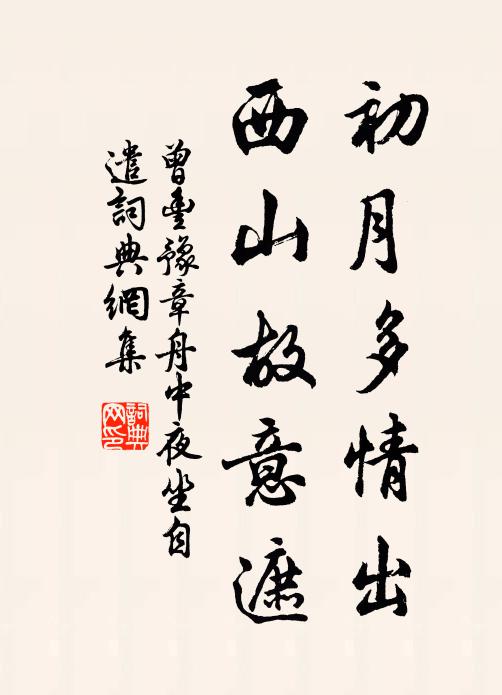 初月多情出
西山故意遮
曾豐豫章舟中夜坐自
遣詞典網集
詞典
网印